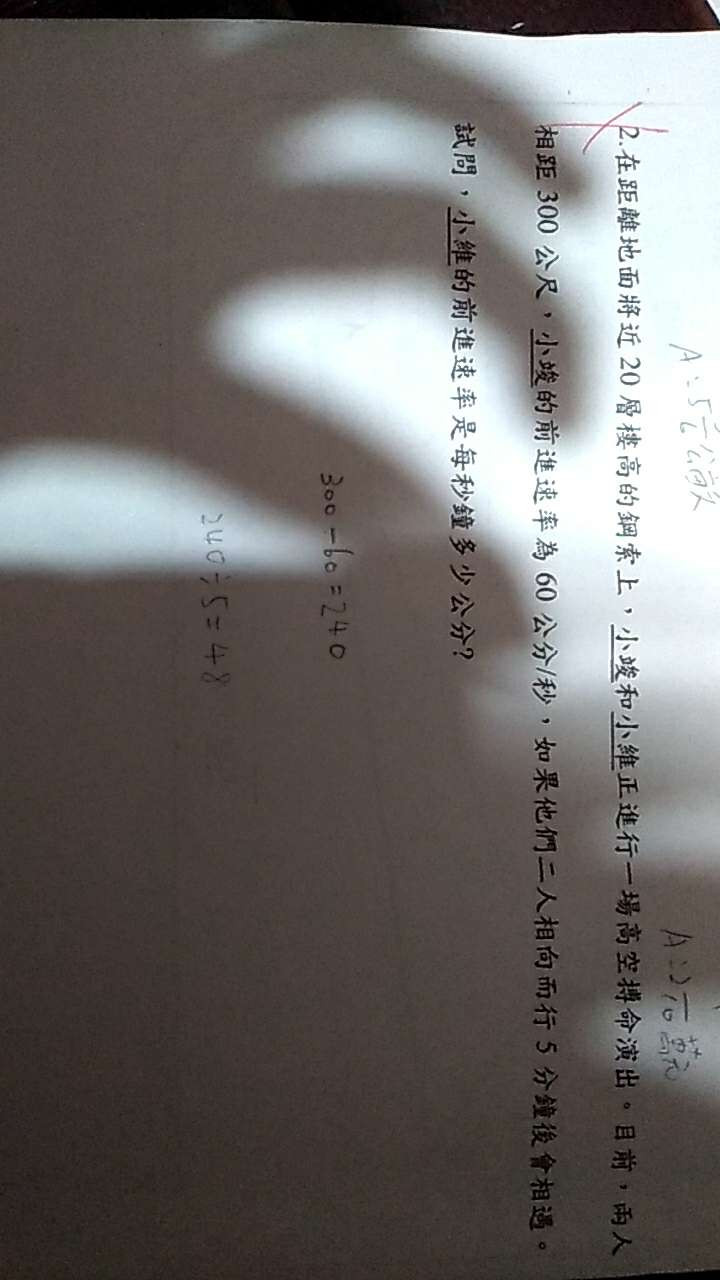 A:5
2.在距離地面將近 20 層樓高的鋼索上，小竣和小維正進行一場高空搏命演出。目前，兩人
相距 300 公尺，小竣的前進速率為 60 公分/秒，如果他們二人相向而行 5 分鐘後會相遇。
試問，小維的前進速率是每秒鐘多少公分?
300-60=240
240÷5=48